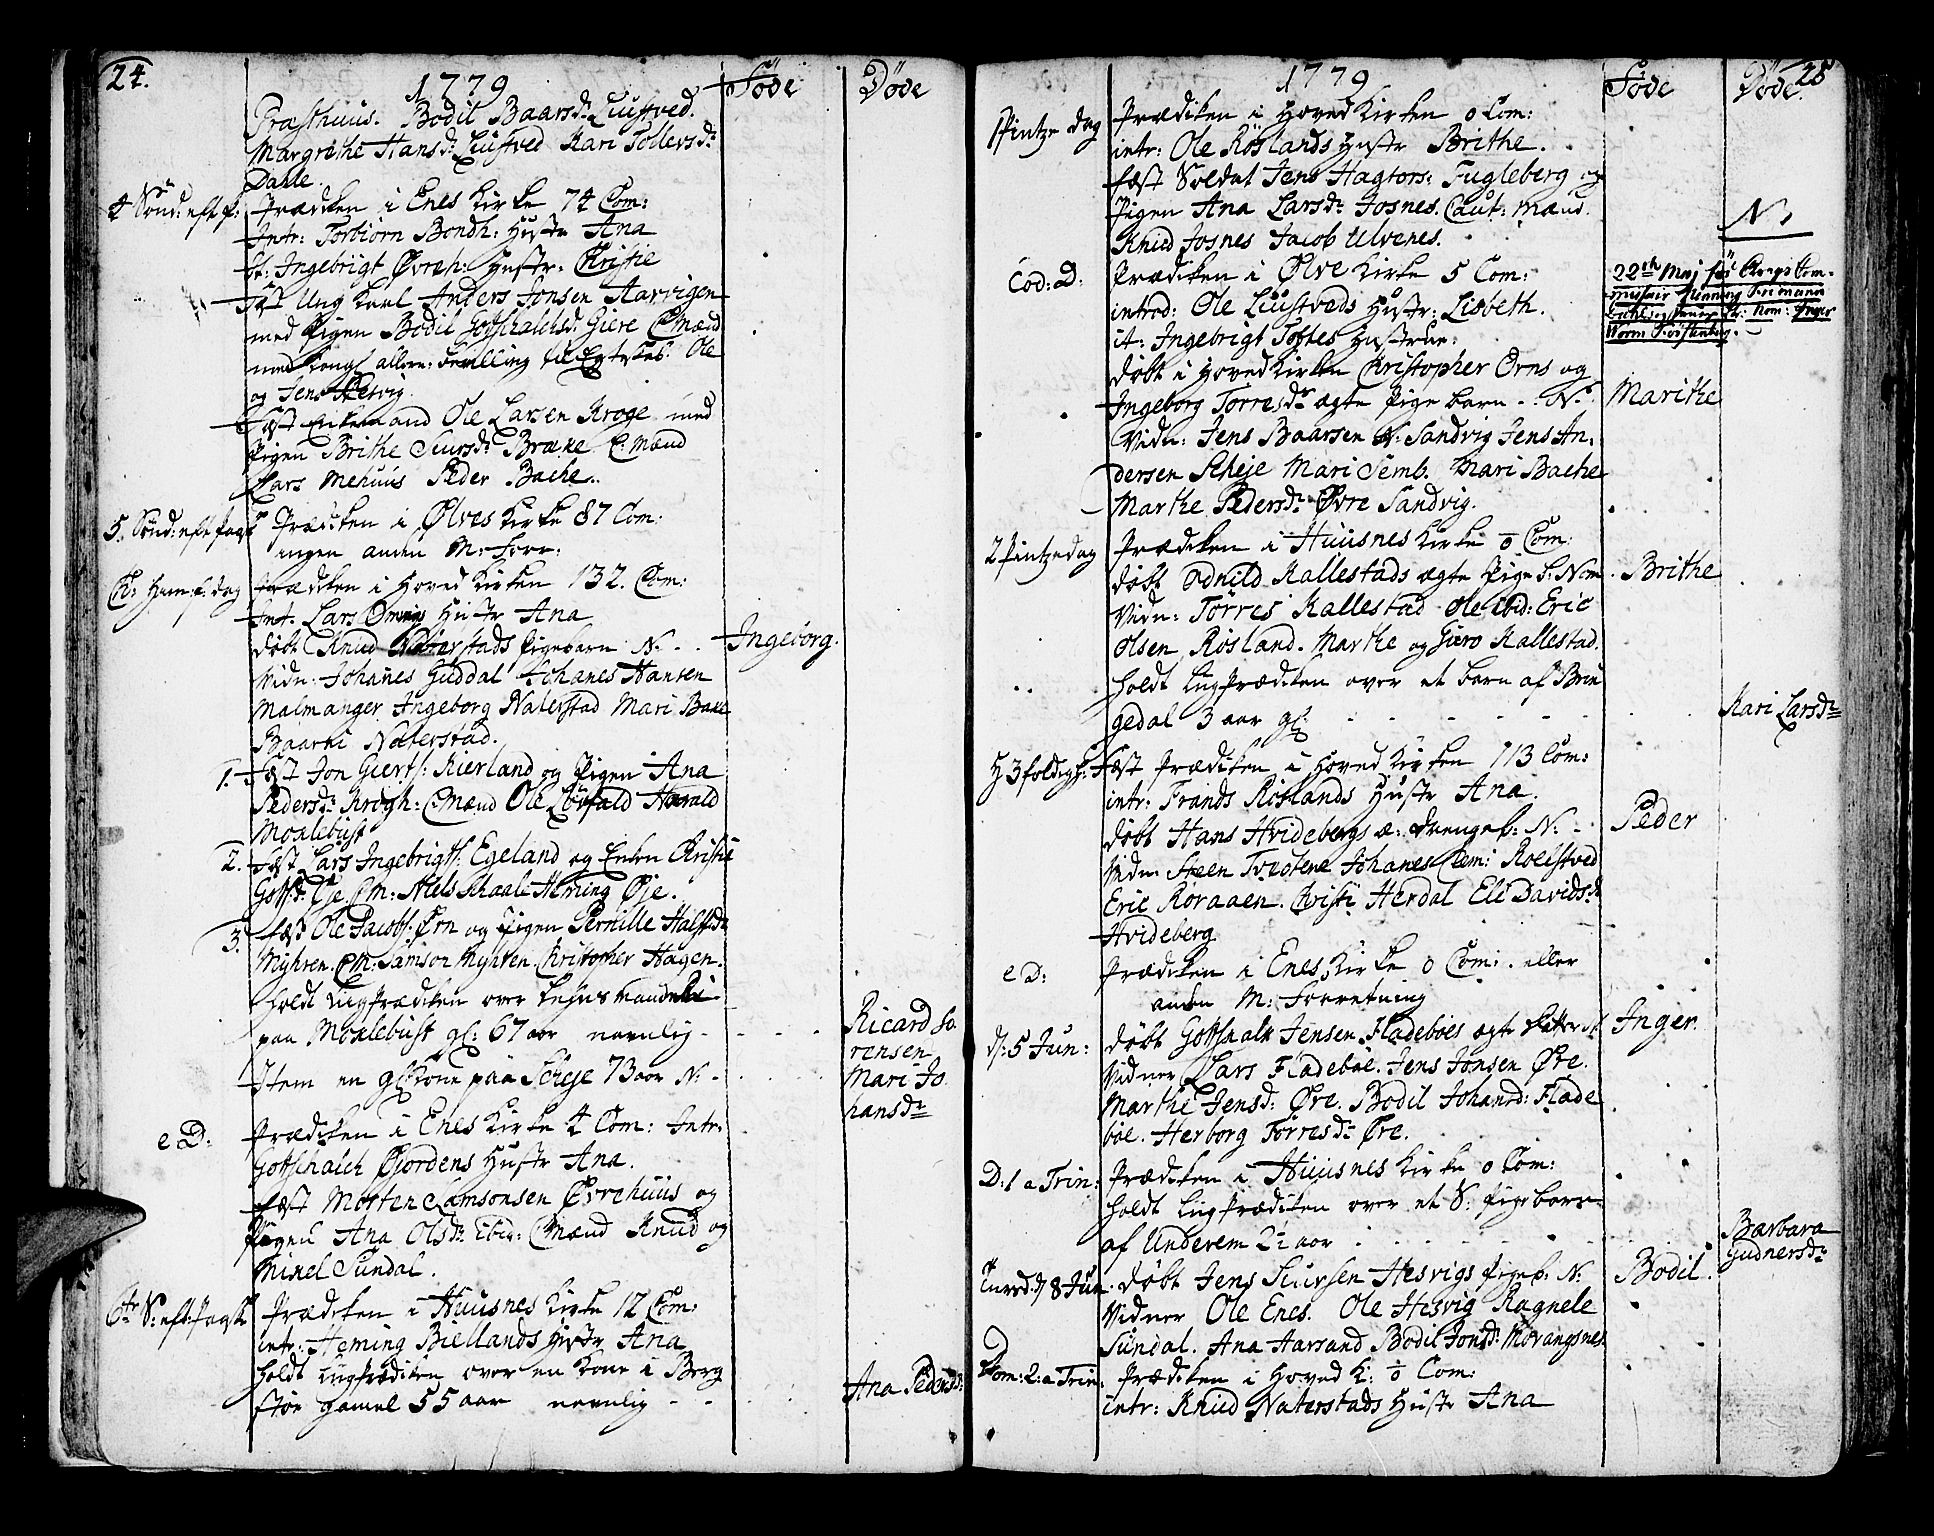 24.
1779
Føde
Døde
Præsthuus. Bodil Baarsd: Liustved.
Margrethe Hansd: Liustved Kari Tollersd:
Dahle.
4 Sønd: eft p: Prædiken i Enes Kirke 74 Com:
Intr: Torbiørn Bondh: Hustr Ana
it: Ingebrigt Øvreh: Hustr: Christie
Fæst Ung Karl Anders Jonsen Aarvigen
med Pigen Bodil Gotschalchsd: Giere CMænd
med Kongl allern: til Egtesk: Ole
og Jens Hesvig.
Fæst Enkemand Ole Larsen Kroge med
Pigen Brithe Siursd: Brække C: Mænd
Lars Mehuus Peder Bache.
5. Sønd: eft Paas Prædiken i Ølves Kirke 87 Com:
ingen anden M: Forr:
Ch: Him: f: dag Prædiken i Hoved Kirken 132. Com:
Int: Lars Hustr Ana
døbt Knud Naterstads Pigebarn N: - . Ingeborg.
Vidn: Johanes Guddal Johanes Hansen
Malmanger Ingeborg Naterstad Mari Bake
Baarni Naterstad.
1. Fæst Jon Gierts: Kierland og Pigen Ana
Pedersd: Krogh: CMænd Ole Løfald Harald
Moxlebust
2. Fæst Lars Ingebrigts: Egeland og Enken Christie
Gotts: Øje CM: Niels Skaale Heming Øje.
3. fæst Ole Jacobs: Ørn og Pigen Pernille Halfsd:
Myhren. CM: Samson Myhren. Christopher Hagen.
holdt Liigprædiken over
paa Moxlebust gl: 67 aar navnlig - - - - Ricard So
rensen
Item en gl Kone paa Scheje 73 aar N: - Mari Jo
hansd:
e D: Prædiken i Enes Kirke 4 Com: Intr:
Gottschalch Gjordens Hustr Ana.
fæst Morten Samsonsen Øvrehuus og
Pigen Ana Olsd: ibid: CMænd Knud og
Mikel Sundal.
6te S: eft: Paask Prædiken i Huusnes Kirke 12 Com:
intr: Heming Biellands Hustr Ana
holdt Liigprædiken over en Kone i Berg
støe gamel 55 aar navnlig - - Ana Pedersd:
25
1779
Føde
Døde.
Pintze dag Prædiken i Hoved Kirken 0 Com:
intr: Ole Røslands Hustr Brithe.
fæst Soldat Jens Hagtors: Fugleberg og
Pigen Ana Larsd: Josnes. Caut: Mænd
Knud Josnes Jacob Ulvenes.
N:
Eod: D: Prædiken i Ølve Kirke 5 Com:
22de Maj
introd: Ole Liustveds Hustr: Lisbeth.
it: Ingebrigt Toftes Hustrue:
døbt i Hoved Kirken Christopher Ørns og
Ingeborg Torresdr ægte Pige barn - N: Marithe
Vidn: Jens Baarsen N: Sandvig Jens An:
dersen Scheje Mari Semb. Mari Bache
Marthe Pedersd: Øvre Sandvig.
2 Pintzedag Prædiken i Huusnes Kirke 0 Com:
døbt Odnild Kallestads ægte Pige b: Nom Brithe
Vidn: Torres Kallestad Ole ibid: Eric
Olsen Røsland. Marthe og Giøro Kallestad.
holdt Liigprædiken over et barn af Brin
gedal 3 aar gl: - - - - - Kari Larsd:
H 3foldigh: Fæst Prædiken i Hoved Kirken 113 Com:
intr: Frands Røslands Hustr Ana.
døbt Hans Hvidebergs æ: drengeb: N: - Peder
Vidn: Steen Tveitene Johanes Clem: Rolfstved
Eric Røraaen. Christi Herdal Eli Davidsd:
Hvideberg
e D: Prædiken i Enes Kirke 0 Com: eller
anden M: Forretning
d: 5 Jun: døbt Gotschalk Jensen Fladebøes ægte N: Inger.
Vidner Lars Fladebøe. Jens Jonsen Øre.
Marthe Jensd: Øre. Bodil Johansd: Flade
bøe. Herborg Torresd: Øre.
D: 1 a Trin: Prædiken i Huusnes Kirke 0 Com:
holdt Liigprædiken over et S: Pigebarn
af Underem 2½ aar - - - - - Barbara
Gudnersd:
8 Jun: døbt Jens Siursen Hesvigs Pigeb: N: Bodil.
Vidner Ole Enes. Ole Hesvig Ragnele
Sundal. Ana Aarsand Bodil Jonsd: Morangsnes
Dom: 2: a Trin: Prædiken i Hoved K: 0 Com:
intr: Knud Naterstads Hustr Ana